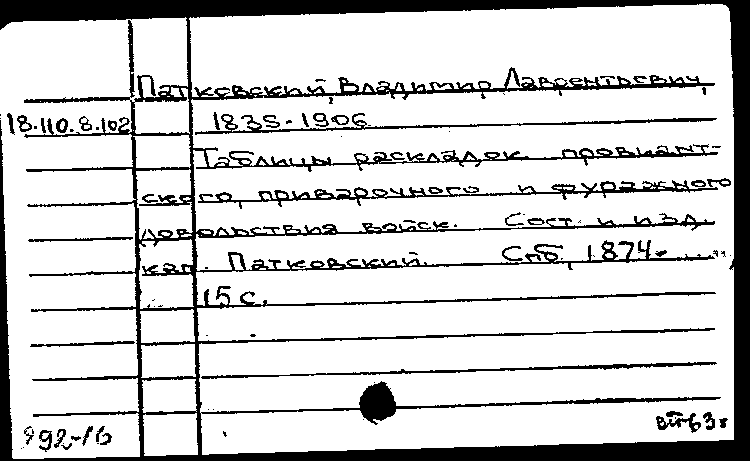 Патковский, Владимир Лаврентьевич,
18.110.8.102 1835-1906
Таблицы раскладок провиант-
ского, приварочного и фуражного
довольствия войск. Сост. и изд.
кап. Патковский. Спб, 1874.
15 с.
92-16